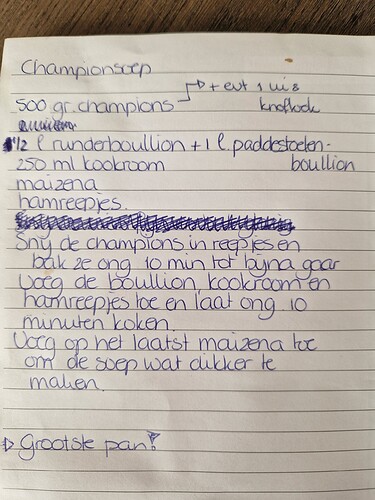 Championsoep
500 gr. champions → + evt 1 ui &
knoflook
1/2 l runderboullion + 1 l. paddestoelen-
boullion
250 ml kookroom
maizena
hamreepjes.
Snij de champions in reepjes en
bak ze ong 10 min tot bijna gaar
Voeg de boullion, kookroom en
hamreepjes toe en laat ong 10
minuten koken.
Voeg op het laatst maizena toe
om de soep wat dikker te
maken.
▷ Grootste pan!